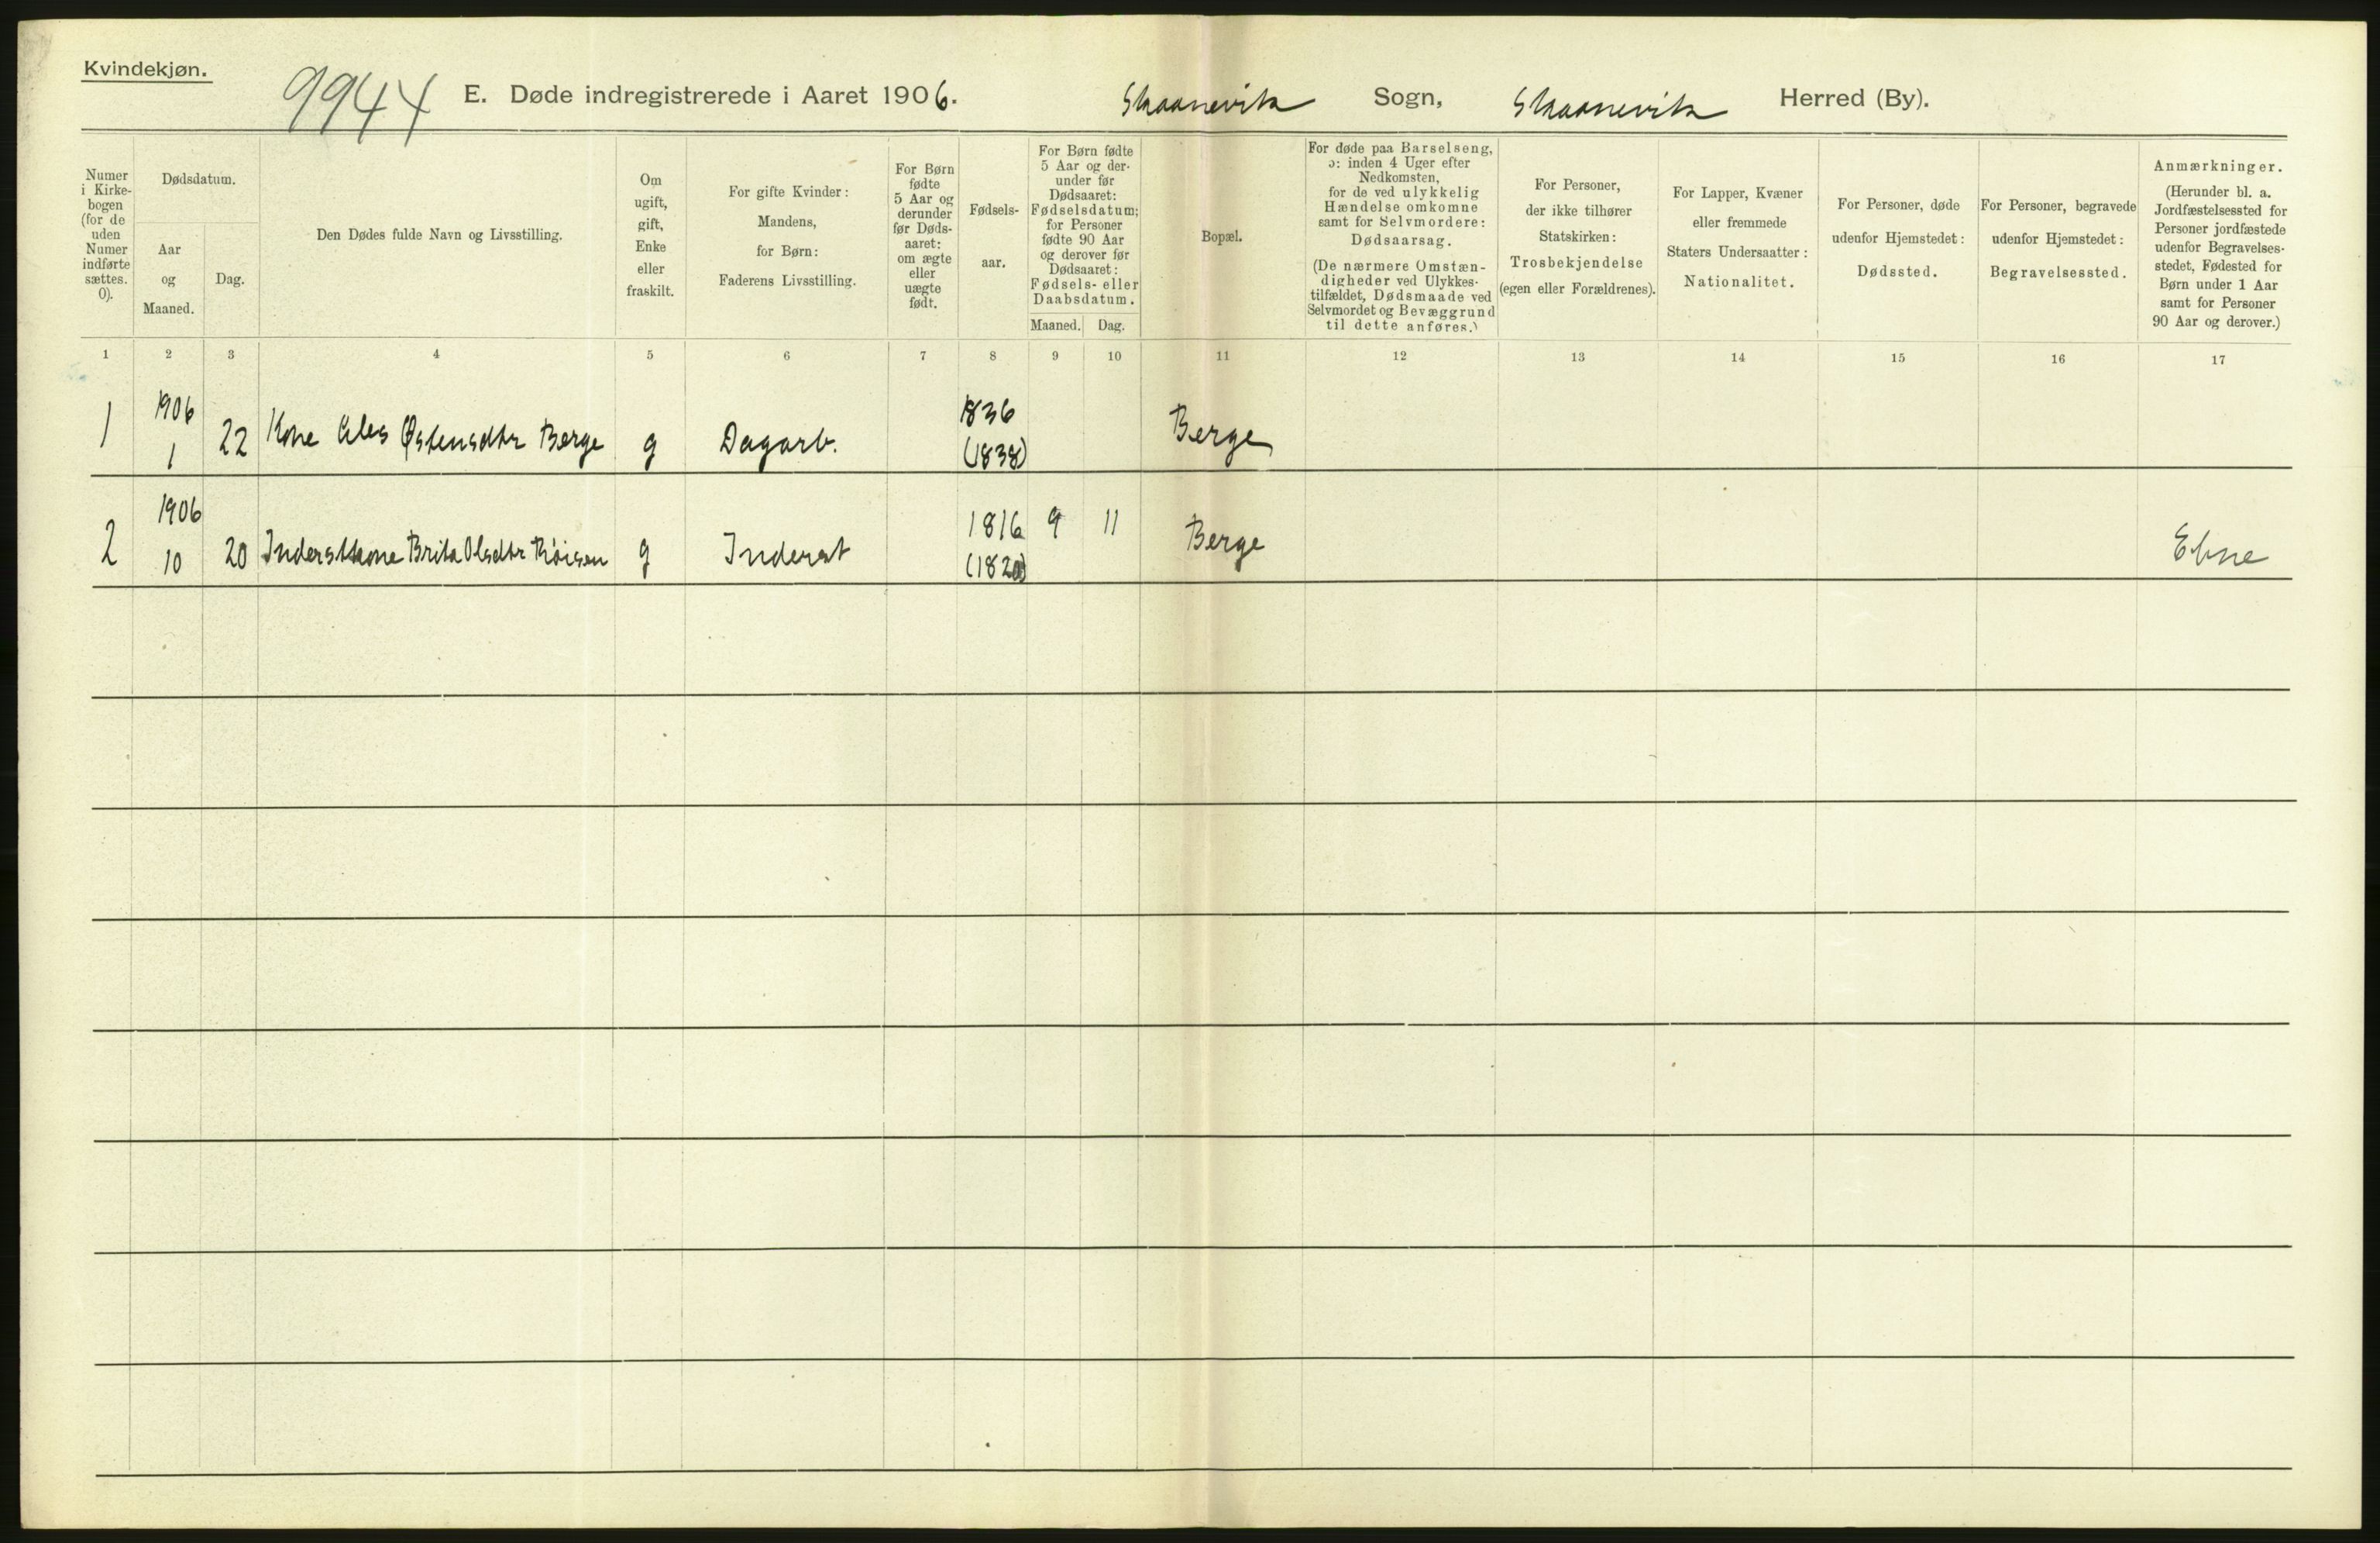 Kvindekjøn.
9944
E. Døde indregistrerede i Aaret 1906.
Skaanevik Sogn, Skaanevik Herred (By).
Numer
i Kirke-
bogen
(for de
uden
Numer
indførte
sættes.
0).
Dødsdatum.
Aar
og
Maaned.
Dag.
Den Dødes fulde Navn og Livsstilling.
Om
ugift,
gift,
Enke
eller
fraskilt.
For gifte Kvinder:
Mandens,
for Børn:
Faderens Livsstilling.
For Børn
fødte
5 Aar og
derunder
før Døds-
aaret:
om ægte
eller
uægte
født.
Fødsels-
aar.
For Børn fødte
5 Aar og der-
under før
Dødsaaret:
Fødselsdatum;
for Personer
fødte 90 Aar
og derover før
Dødsaaret:
Fødsels- eller
Daabsdatum.
Maaned. Dag.
Bopæl.
For døde paa Barselseng,
ɔ: inden 4 Uger efter
Nedkomsten,
for de ved ulykkelig
Hændelse omkomne
samt for Selvmordere:
Dødsaarsag.
(De nærmere Omstæn-
digheder ved Ulykkes-
tilfældet, Dødsmaade ved
Selvmordet og Bevæggrund
til dette anføres.)
For Personer,
der ikke tilhører
Statskirken:
Trosbekjendelse
(egen eller Forældrenes).
For Lapper, Kvæner
eller fremmede
Staters Undersaatter:
Nationalitet.
For Personer, døde
udenfor Hjemstedet:
Dødssted.
For Personer, begravede
udenfor Hjemstedet:
Begravelsessted.
Anmærkninger.
(Herunder bl. a.
Jordfæstelsessted for
Personer jordfæstede
udenfor Begravelses-
stedet, Fødested for
Børn under 1 Aar
samt for Personer
90 Aar og derover.)
1 2 3 4 5 6 7 8 9 10 11 12 13 14 15 16 17
1906 1836
1 1 22 Kone Østensdtr Berge g Dagarb. (1838) Berge
1906 1816 9 11
2 10 20 Brita Olsdtr Røisen g Inderst (1820) Berge Ebne